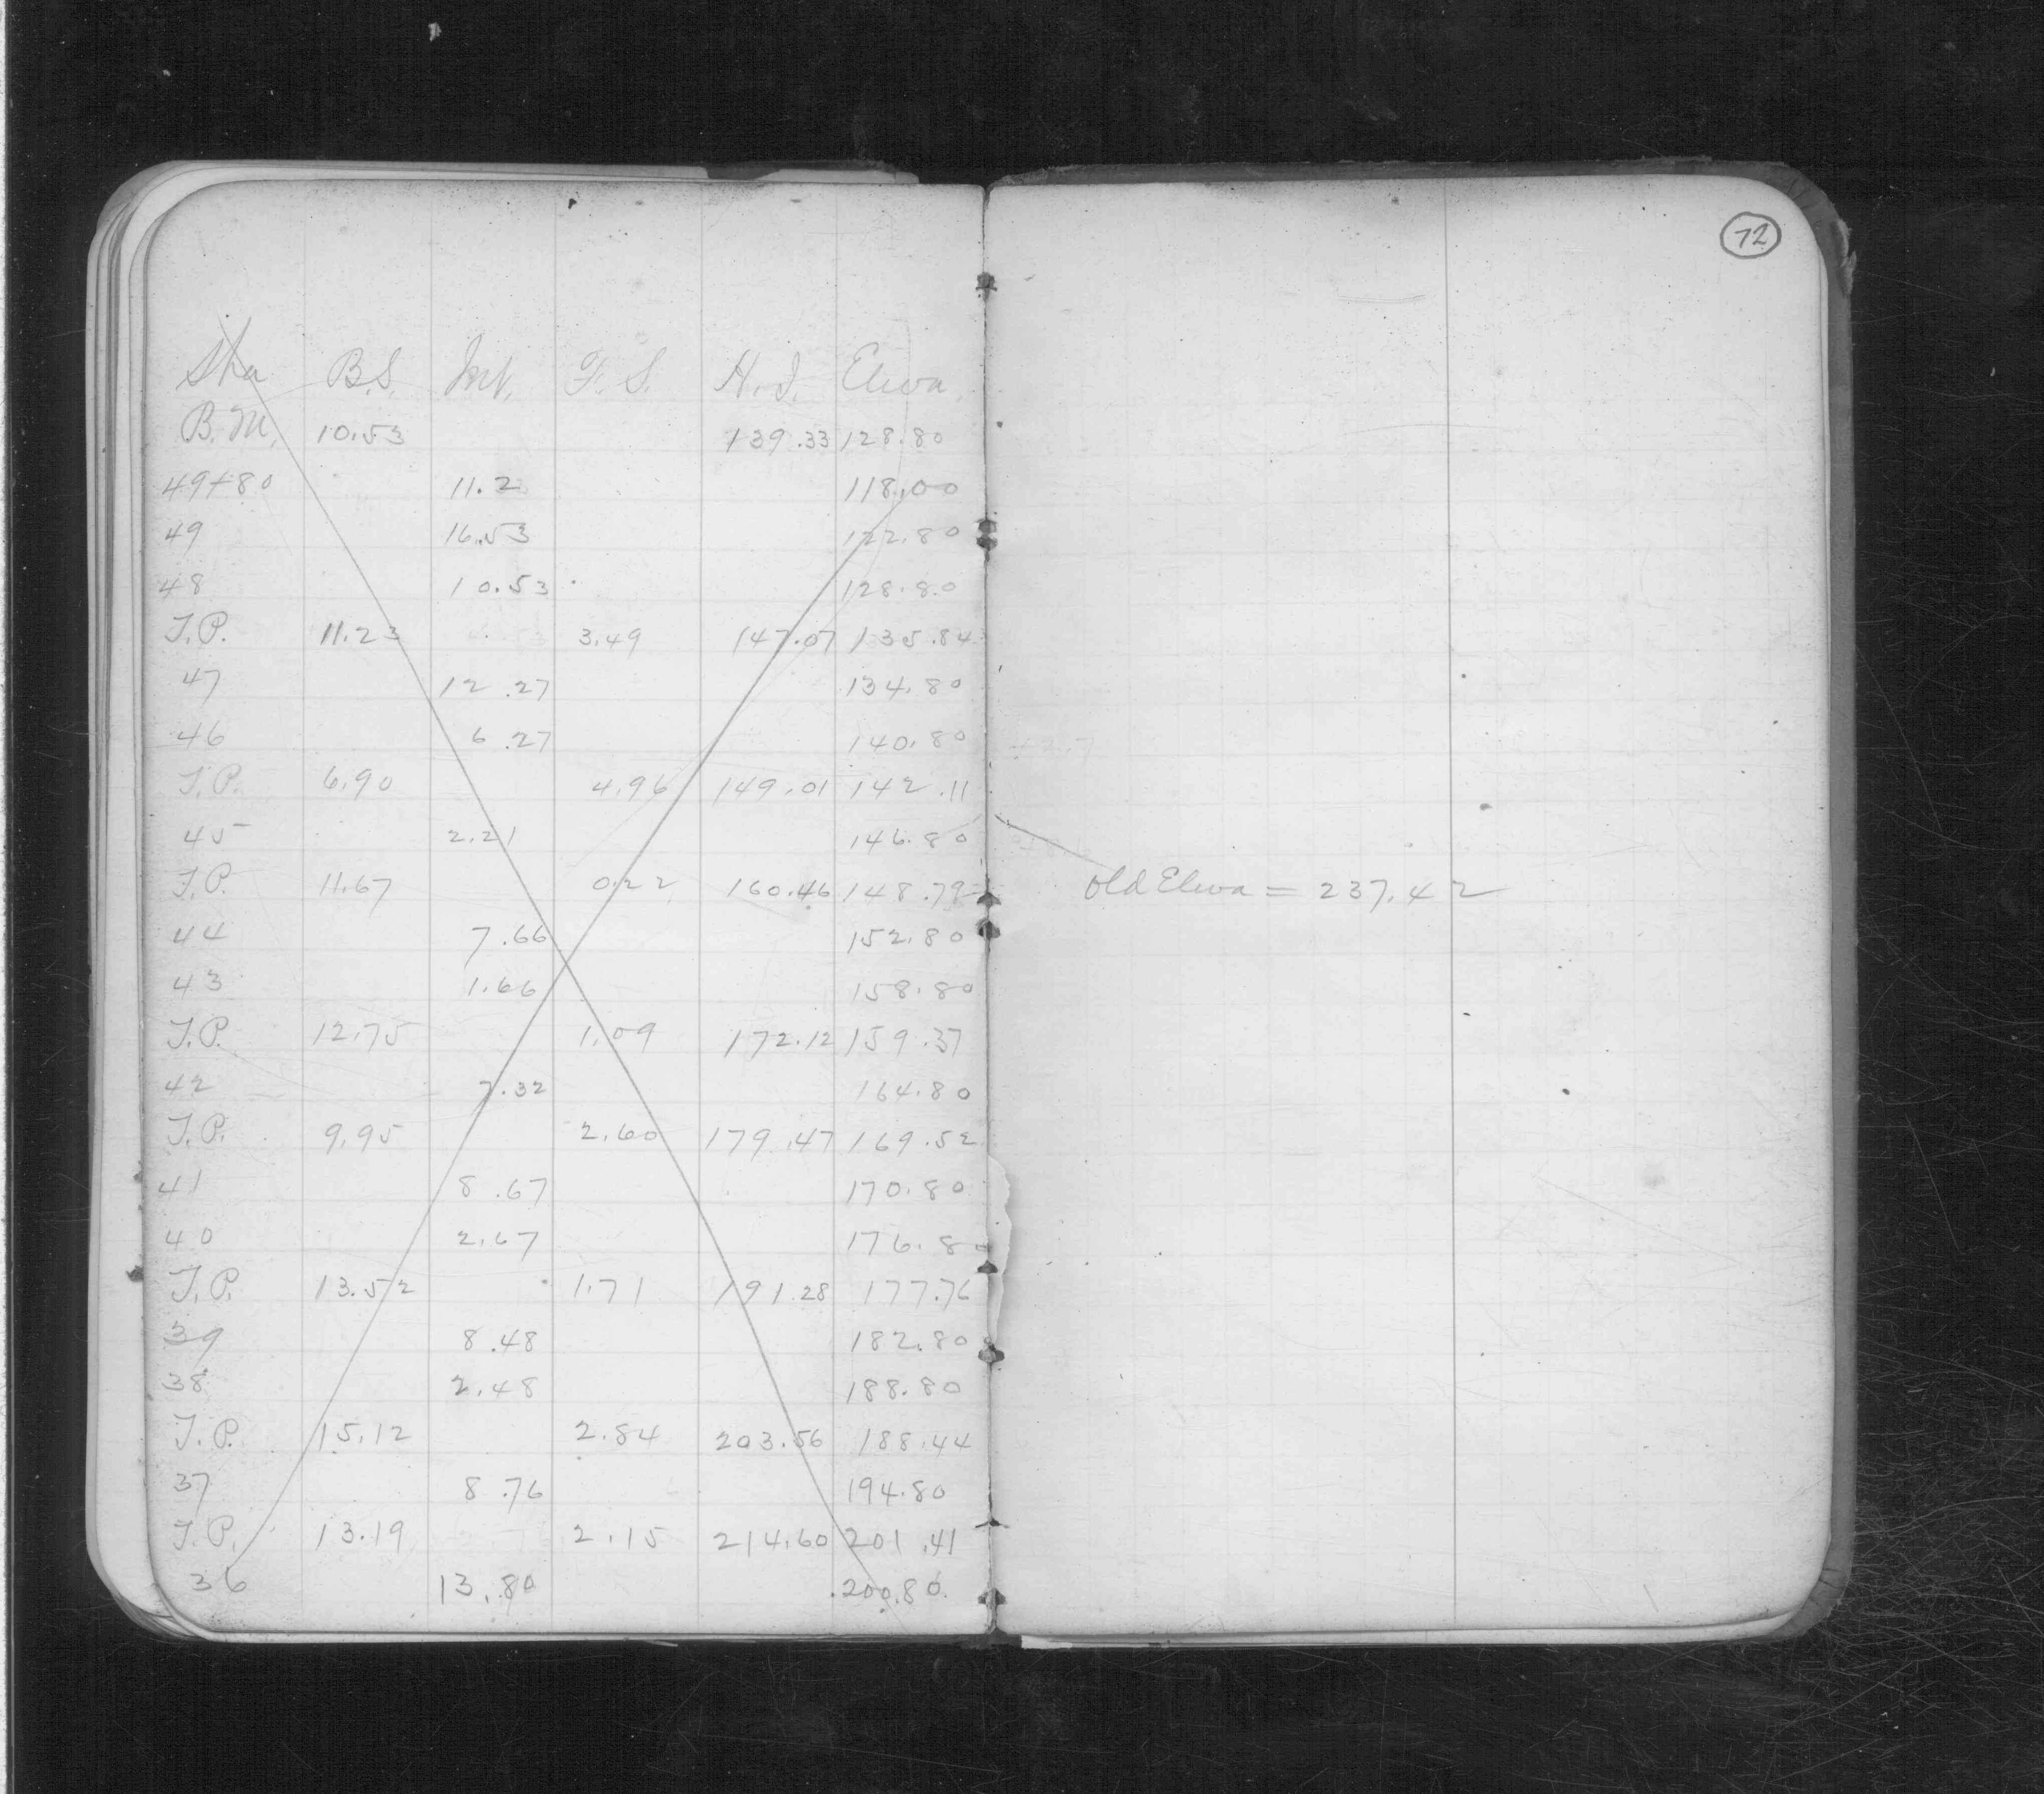 72
Sta B.S. Int. F.S. H.I. Eleva.
B.M. 10.53 139.33 128.80
49+80 11.2 118.00
49 16.53 122.80
48 10.53 128.80
T.P. 11.23 3.49 147.07 135.84
47 12.27 134.80
46 6.27 140.80
T.P. 6.90 4.96 149.01 142.11
45 2.21 146.80
T.P. 11.67 0.22 160.46 148.79
old Eleva = 237.42
44 7.66 152.80
43 1.66 158.80
T.P. 12.75 1.09 172.12 159.37
42 7.32 164.80
T.P. 9.95 2.60 179.47 169.52
41 8.67 170.80
40 2.67 176.80
T.P. 13.52 1.71 191.28 177.76
39 8.48 182.80
38 2.48 188.80
T.P. 15.12 2.84 203.56 188.44
37 8.76 194.80
T.P. 13.19 2.15 214.60 201.41
36 13.80 200.80